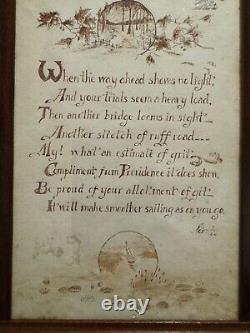 When the way ahead shows no light,
And your trials seem a heavy load,
Then another bridge looms in sight
Another stretch of ruff road--
My! what an estimate of grit
Compliment from Providence it does show.
Be proud of your allotment of git
It will make smoother sailing as on you go.